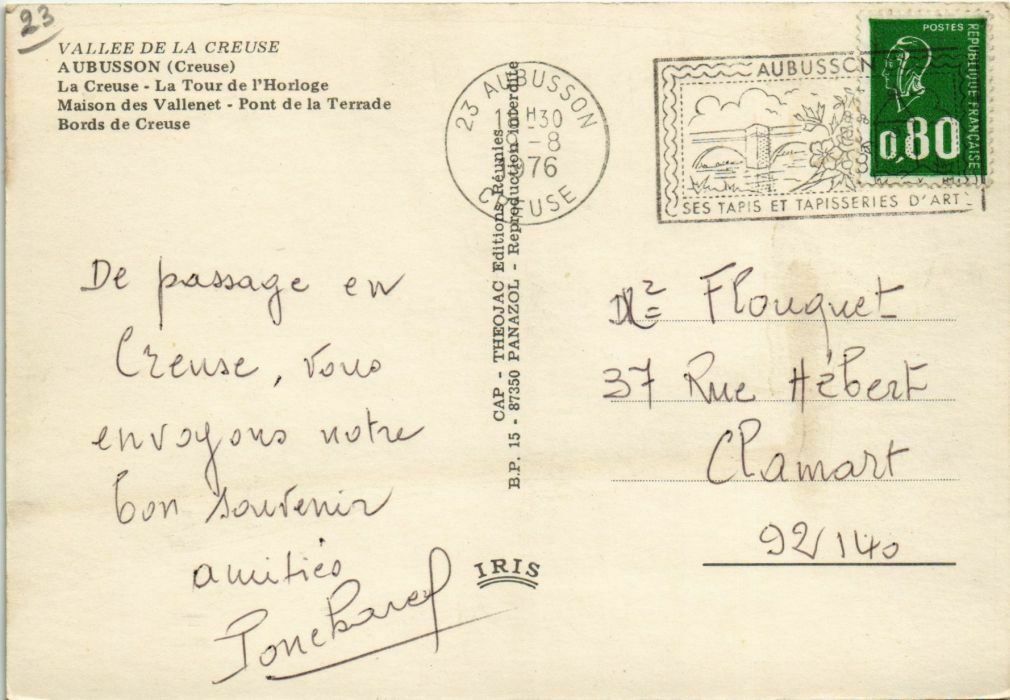 23
VALLEE DE LA CREUSE
AUBUSSON (Creuse)
La Creuse - La Tour de l'Horloge
Maison des Vallenet - Pont de la Terrade
Bords de Creuse
23 AUBUSSON
H30
-8
1976
CREUSE
AUBUSSON
SES TAPIS ET TAPISSERIES D'ART
POSTES
REPUBLIQUE FRANÇAISE
0,80
De passage en
Creuse, vous
envoyons notre
bon souvenir
amitiés
CAP - THEOJAC Editions Réunies
B.P. 15 - 87350 PANAZOL - Reproduction interdite
IRIS
Flouquet
37 Rue Hébert
Clamart
92140